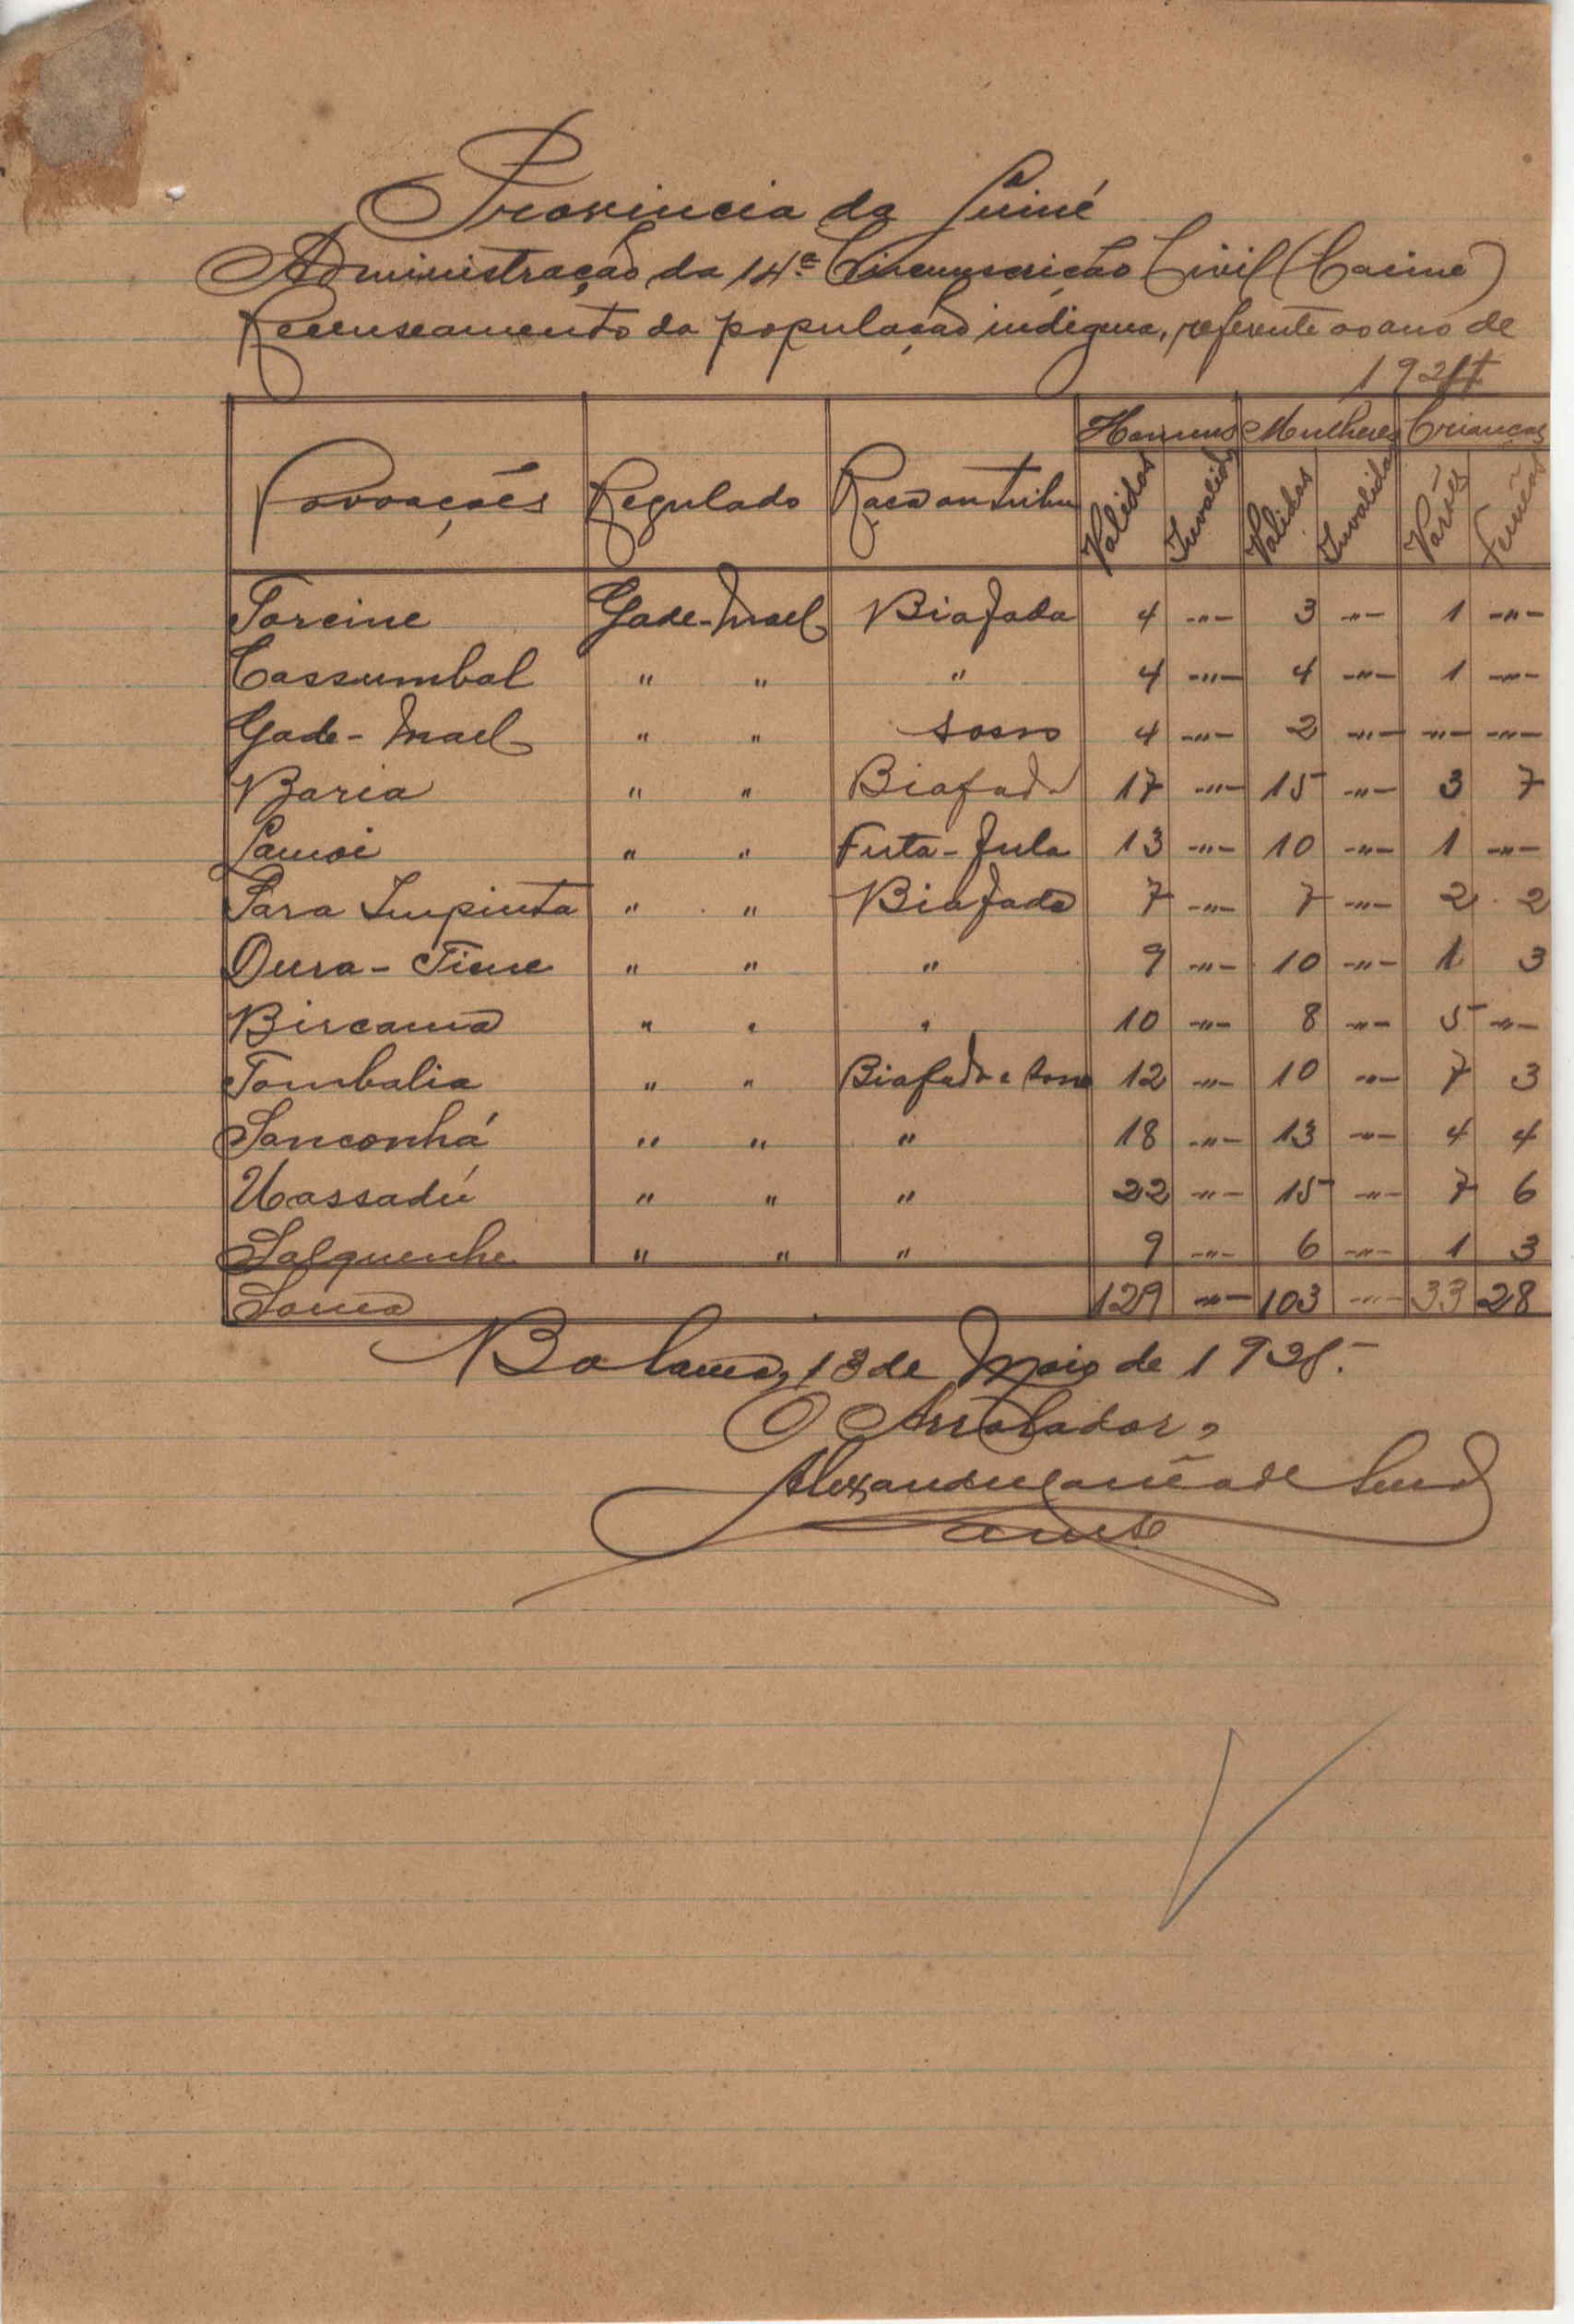 Provincia da Guiné
Administração da 14ª Circunscrição Civil (Cacine)
Recenseamento da população indigena, referente ao ano de
1924
Povoações Regulado Raça ou tribu Homens Mulheres Crianças
Validos Invalidos Validas Invalidas Varões Femeas
Tarcine Gade-Mael Biafada 4 -"- 3 -"- 1 -"-
Cassumbal " " " 4 -"- 4 -"- 1 -"-
Gade-Mael " " Sosso 4 -"- 2 -"- -"- -"-
Baria " " Biafada 17 -"- 15 -"- 3 7
Samoi " " Futa-Fula 13 -"- 10 -"- 1 -"-
Sara Impinta " " Biafada 7 -"- 7 -"- 2 2
Dura-Tiene " " " 9 -"- 10 -"- 1 3
Bircama " " " 10 -"- 8 -"- 5 -"-
Tombalia " " Biafada e Soso 12 -"- 10 -"- 7 3
Sanconhá " " " 18 -"- 13 -"- 4 4
Uassadú " " " 22 -"- 15 -"- 7 6
Salquenhe " " " 9 -"- 6 -"- 1 3
Soma 129 -"- 103 -"- 33 28
Bolama, 13 de Maio de 1925.
O Arrolador,
Alexandre